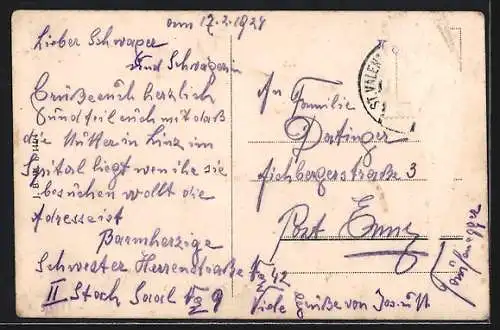 am 17.2.1928
Lieber Schwager
und Schwägerin
Grüße euch herzlich
und teil euch mit daß
die Mutter in Linz im
Spital liegt wen ihr sie
besuchen wollt die
Adresse ist
Barmherzige
Schwester Herrenstraße No 42
II Stock Saal No 9
Viele Grüße von
ST. VALEN
An Familie
Datinger
Aichbergerstraße 3
Post Enns